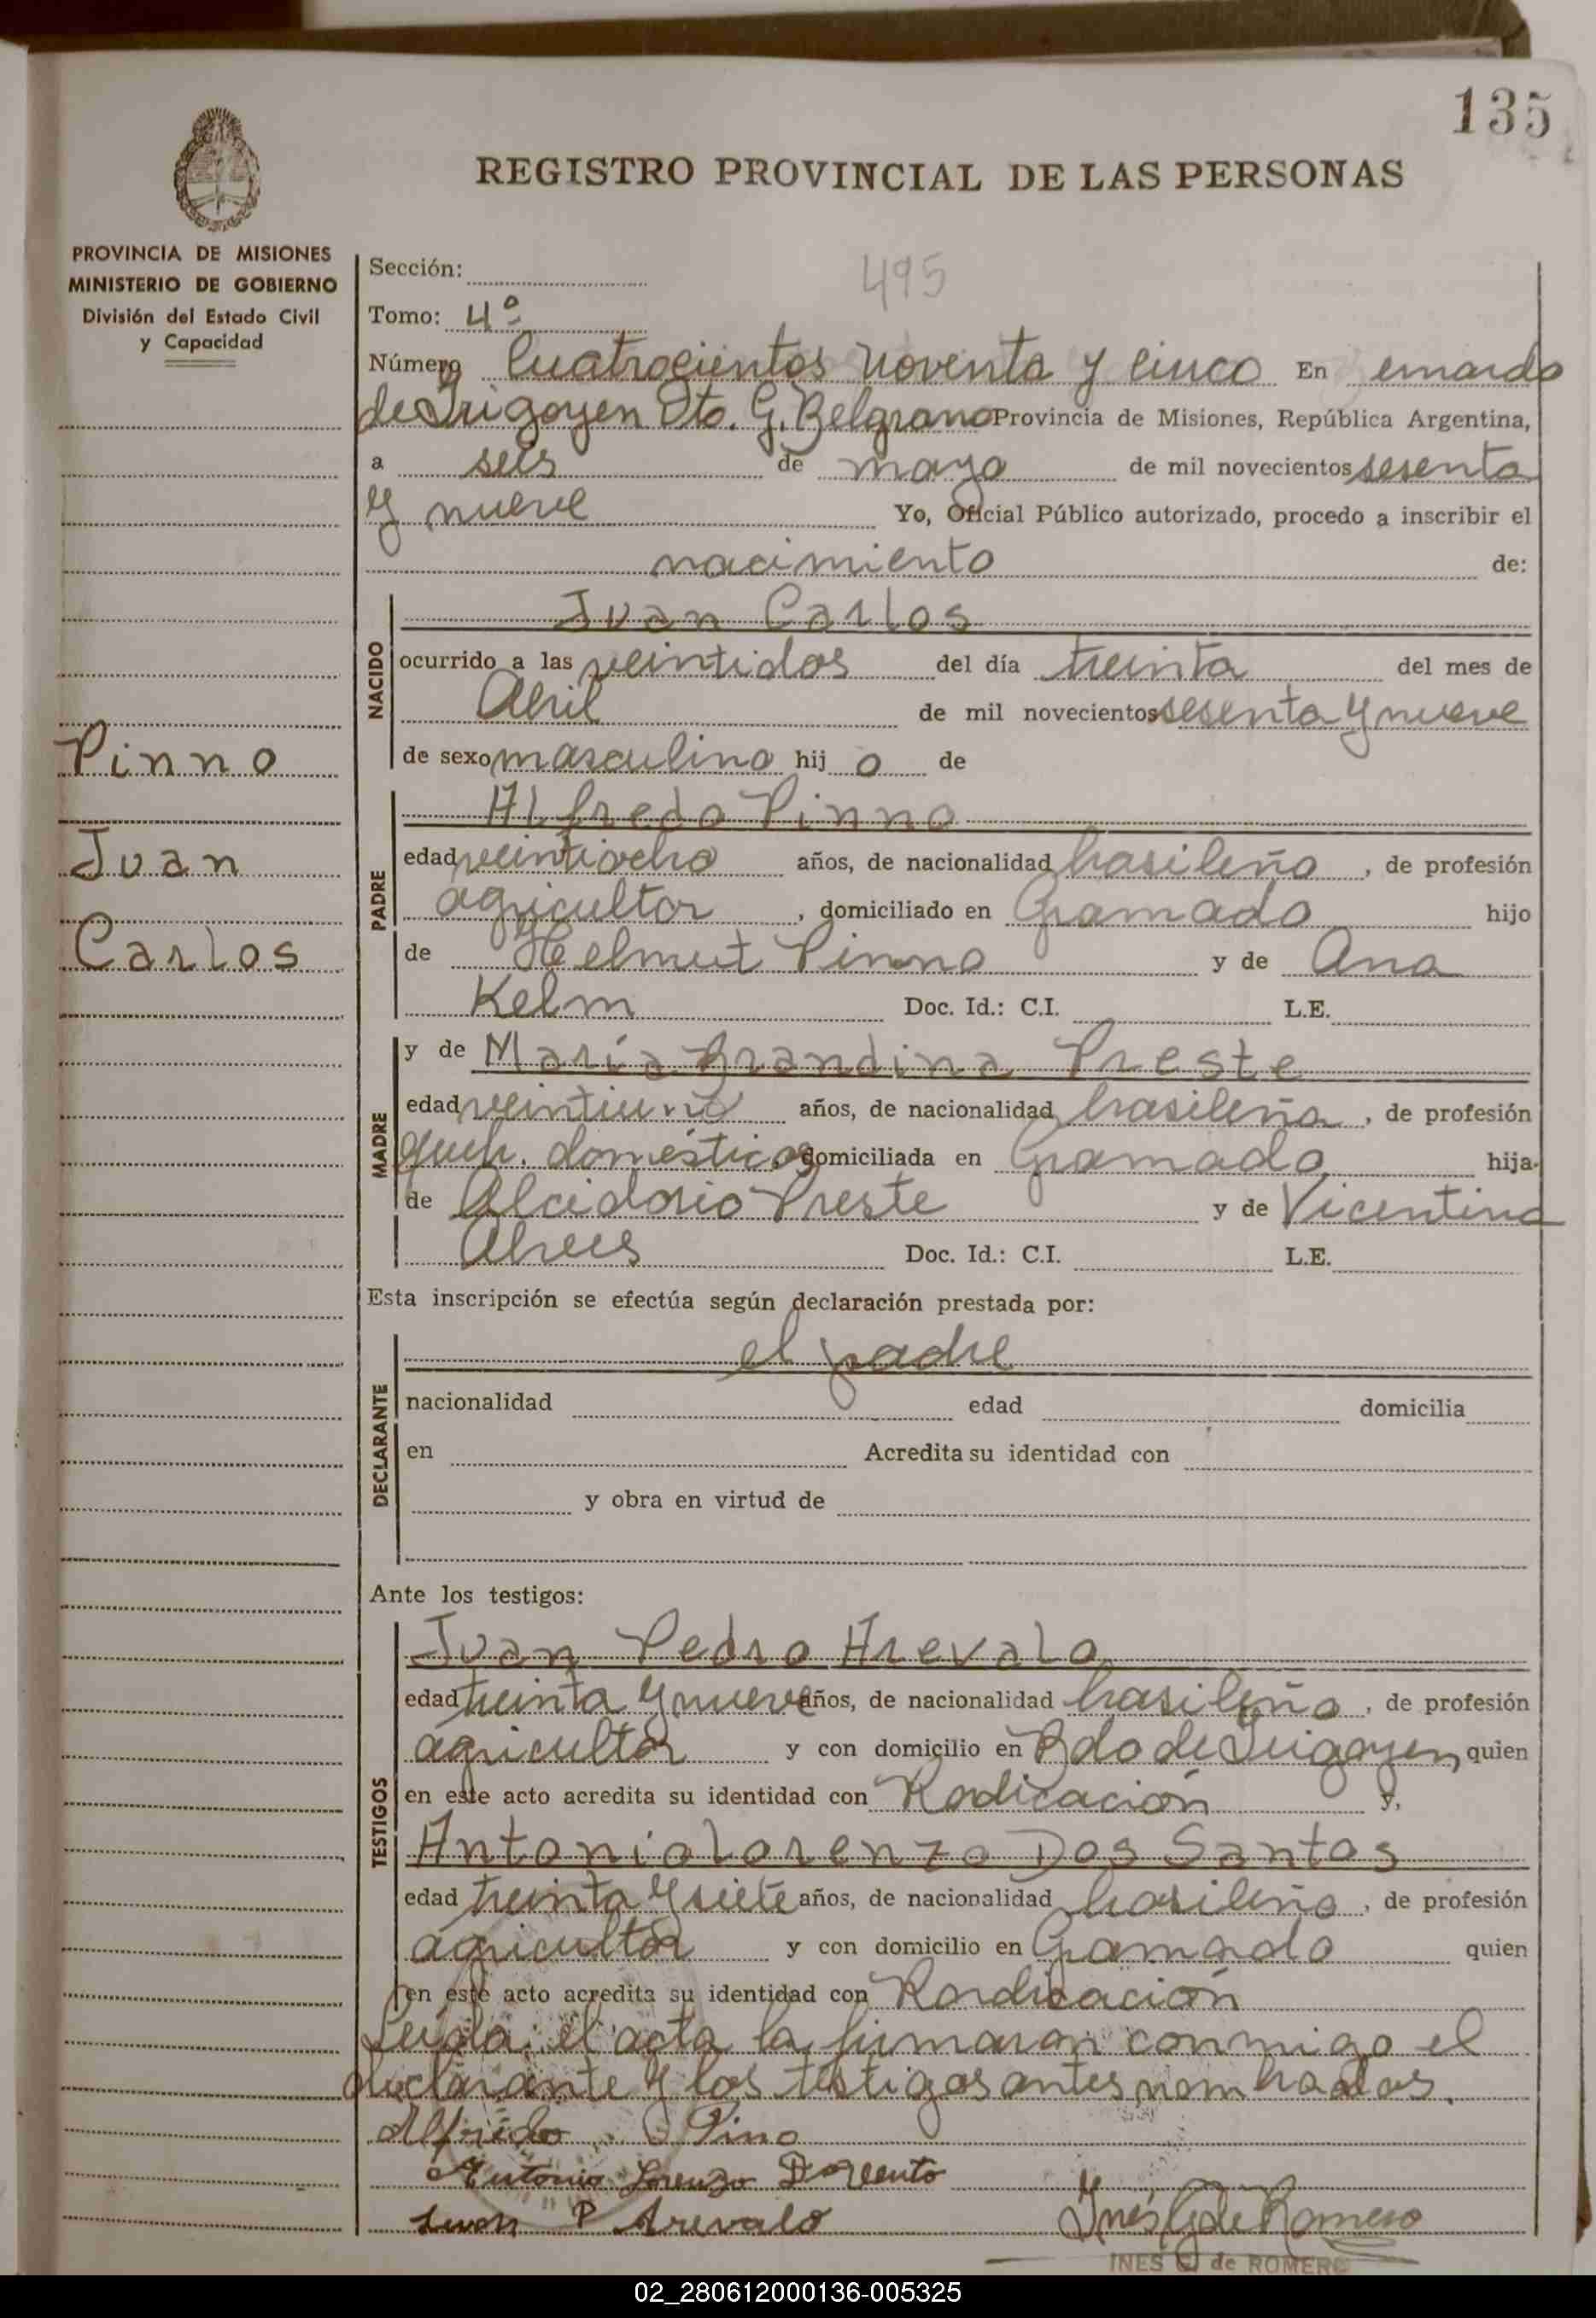 135
REGISTRO PROVINCIAL DE LAS PERSONAS
PROVINCIA DE MISIONES
MINISTERIO DE GOBIERNO
División del Estado Civil
y Capacidad
Pinno
Juan
Carlos
Sección:
495
Tomo: 4º
Número Cuatrocientos noventa y cinco En ernardo
de Irigoyen Dto. G. Belgrano Provincia de Misiones, República Argentina,
a seis de mayo de mil novecientos sesenta
y nueve Yo, Oficial Público autorizado, procedo a inscribir el
nacimiento de:
NACIDO
Juan Carlos
ocurrido a las veintidos del día treinta del mes de
Abril de mil novecientos sesenta y nueve
de sexo masculino hij o de
PADRE
Alfredo Pinno
edad veintiocho años, de nacionalidad brasileño, de profesión
agricultor, domiciliado en Gramado hijo
de Helmut Pinno y de Ana
Kelm Doc. Id.: C.I. L.E.
MADRE
y de María Brandina Preste
edad veintiuno años, de nacionalidad brasileña, de profesión
queh. domésticos domiciliada en Gramado hija
de Alcidorio Preste y de Vicentina
Doc. Id.: C.I. L.E.
Esta inscripción se efectúa según declaración prestada por:
DECLARANTE
el padre
nacionalidad edad domicilia
en Acredita su identidad con
y obra en virtud de
Ante los testigos:
TESTIGOS
Juan Pedro Arevalo
edad treinta y nueve años, de nacionalidad brasileño, de profesión
agricultor y con domicilio en Bdo de Irigoyen, quien
en este acto acredita su identidad con Radicación y,
Antonio Lorenzo Dos Santos
edad treinta y siete años, de nacionalidad brasileño, de profesión
agricultor y con domicilio en Gramado quien
en este acto acredita su identidad con Radicación
Leída el acta la firmaron conmigo el
declarante y los testigos antes nombrados.
Alfredo Pino
Antonio Lorenzo
Juan P Arevalo
Inés G de Romero
INES G. de ROMERO
02_280612000136-005325